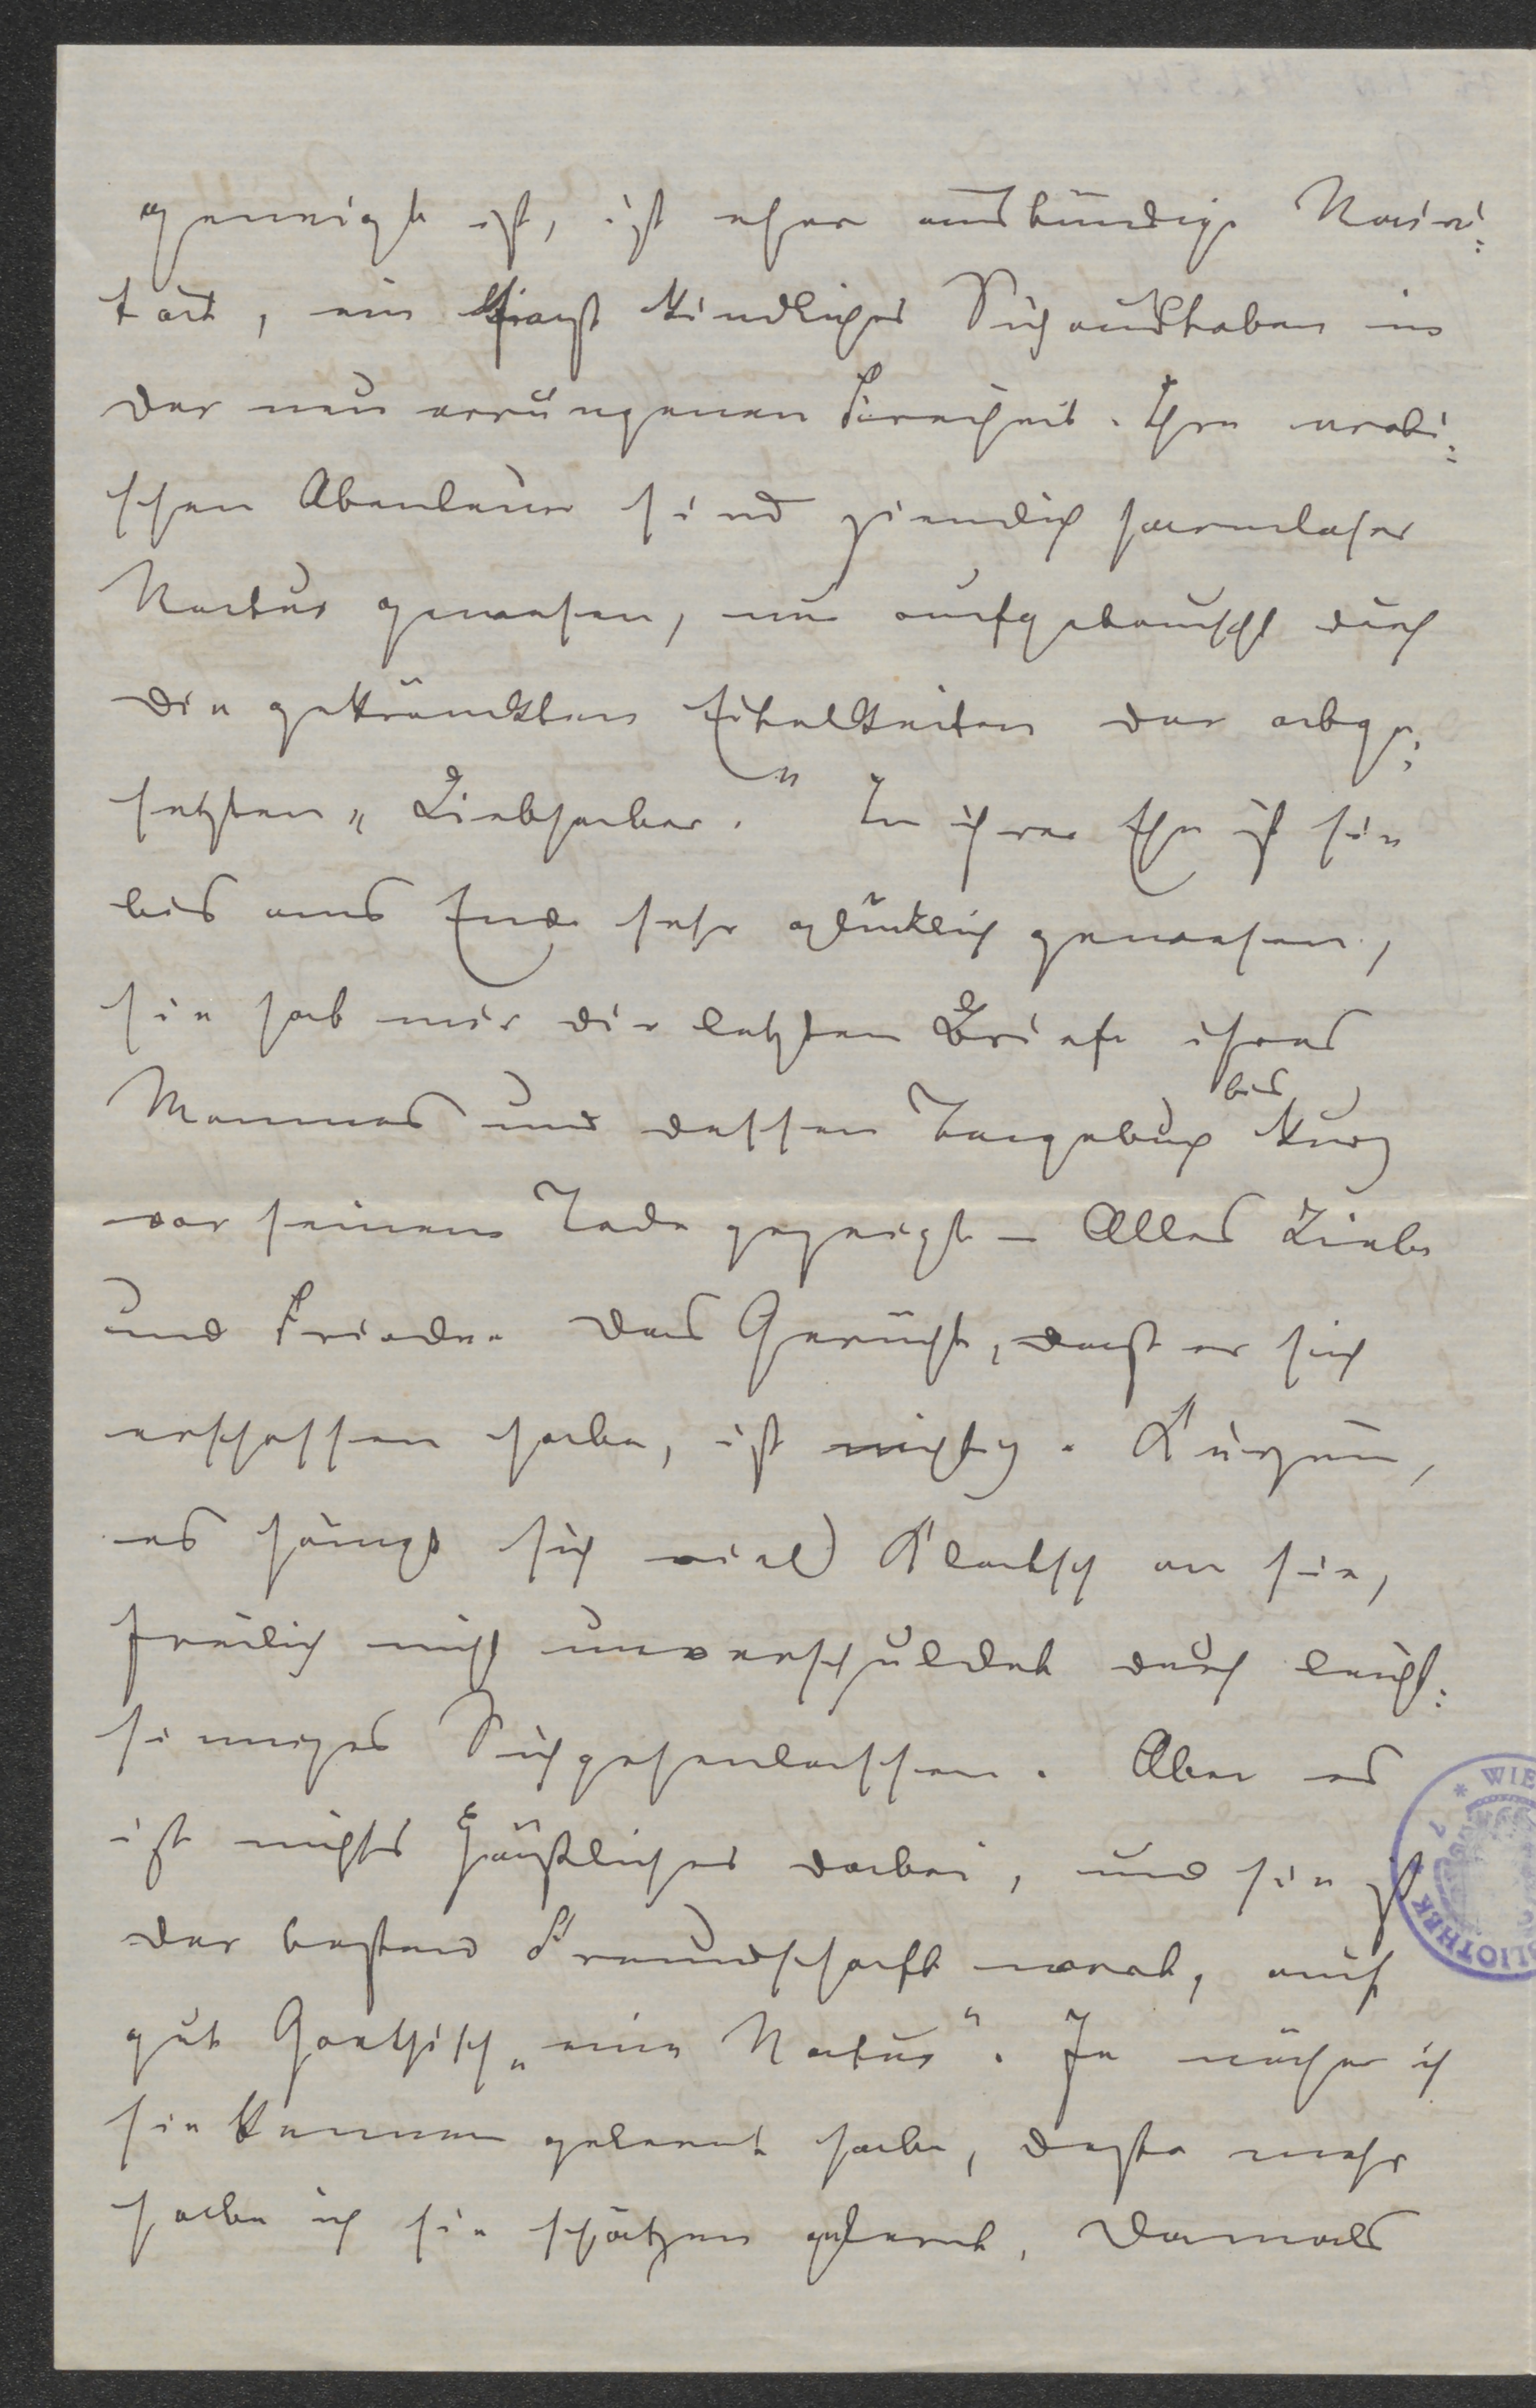 geneigt ist, ist eher ausbündige Naivi:
tät, ein fast kindliches Sichaustoben in
der neu errungenen Freiheit. Ihre eroti:
schen Abenteuer sind ziemlich harmloser
Natur gewesen, nur aufgebauscht durch
die gekränkten Eitelkeiten der abge:
setzten „Liebhaber." In ihrer Ehe ist sie
bis ans Ende sehr glücklich gewesen,
sie hat mir die letzten Briefe ihres
Mannes und dessen Tagebuch bis kurz
vor seinem Tode gezeigt – Alles Liebe
und Friede. Das Gerücht, dass er sich
erschossen habe, ist nichtig. Kurzum,
es hängt sich viel Klatsch an sie,
freilich nicht unverschuldet durch leicht:
sinniges Sichgehenlassen. Aber es
ist nichts Hässliches dabei, und sie ist
der besten Freundschaft wert, auch
gut Goethisch „eine Natur". Je näher ich
sie kennen gelernt habe, desto mehr
habe ich sie schätzen gelernt. Damals